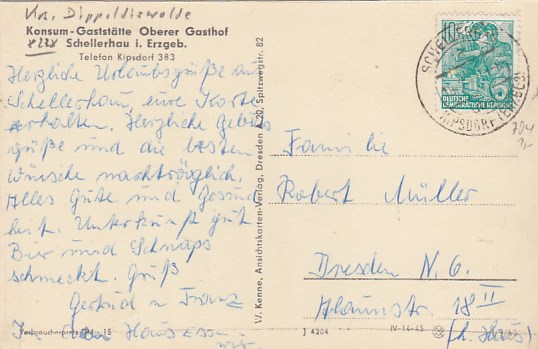 Krs. Dippoldiswalde
Konsum-Gaststätte Oberer Gasthof
8238 Schellerhau i. Erzgeb.
Telefon Kipsdorf 383
Herzliche Urlaubsgrüße aus
Schellerhau, eure Karte
erhalten. Herzliche Geburts
grüße und die besten
wünsche nachträglich.
Alles Gute und Gesund
heit. Unterkunft gut
Bier und Schnaps
schmeckt. Gruß
Gertrud u Franz
In Hausessen
Verbraucherpreis 15
W. Kenne, Ansichtskarten-Verlag, Dresden A 20, Spitzwegstr. 82
10
DEUTSCHE
DEMOKRATISCHE REPUBLIK
SCHELLERHAU
KIPSDORF (ERZGEB)
Familie
Robert Müller
Dresden N. 6.
Alaunstr. 18 II
(h. Haus)
J 4204
IV-14-45